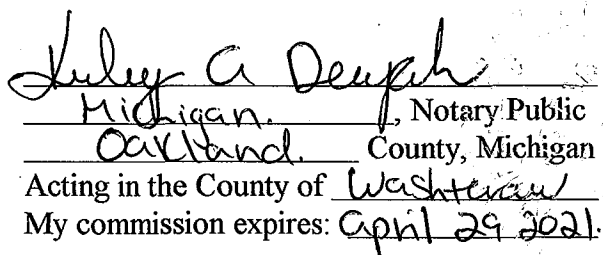 A
Michigan. , Notary Public
Oakland. County, Michigan
Acting in the County of Washtenaw
My commission expires: April 29 2021.